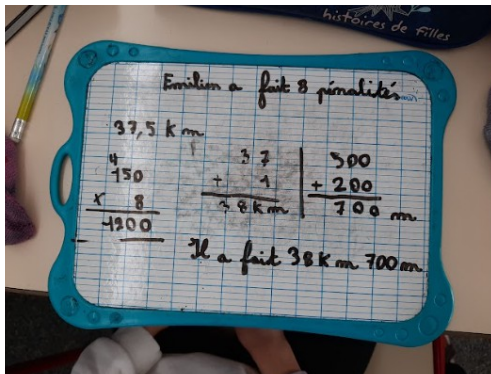 histoires de filles
Emilien a fait 8 pénalités
37,5 km
4
150
x 8
1200
37
+ 1
38km
500
+ 200
700 m
Il a fait 38km 700m